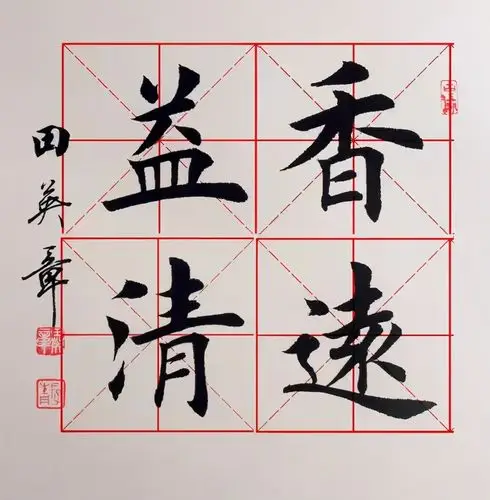 香遠
益清
田英章